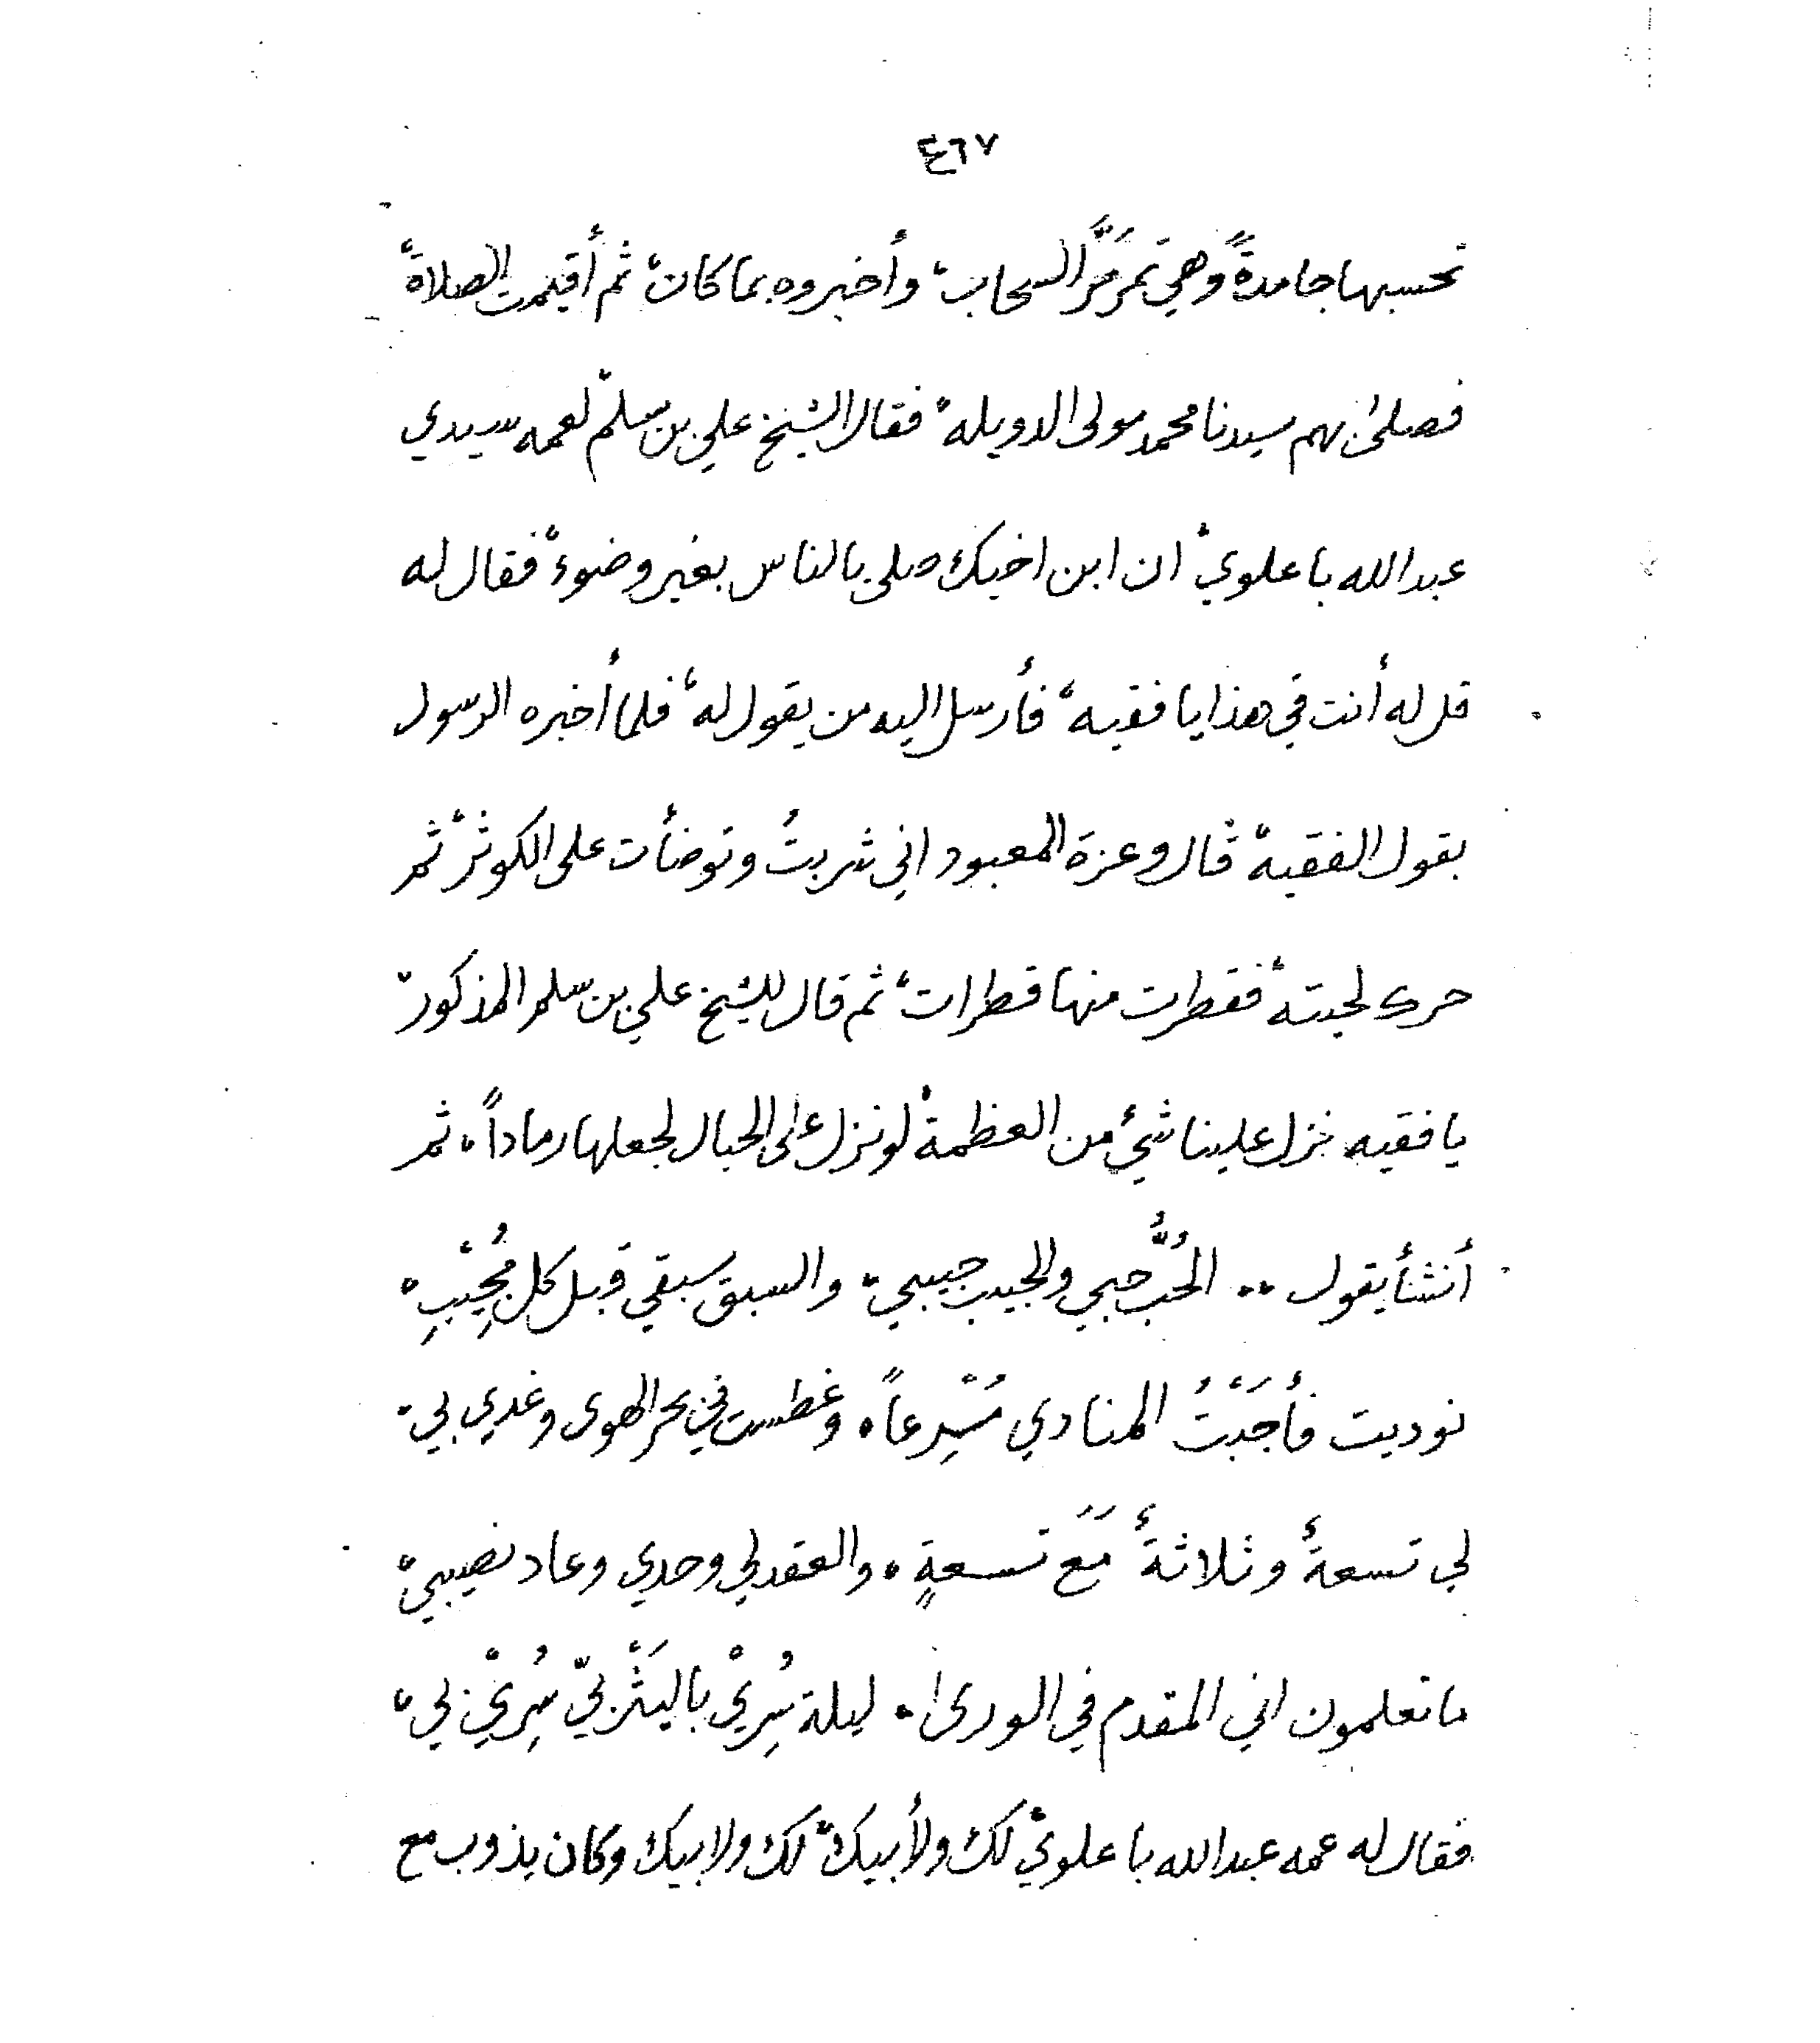 ٤٦٧
تحسبها جامدةً وهي تمر مَرَّ السحاب، وأخبروه بما كان، ثم أقيمت الصلاة،
فصلىٰ بهم سيدنا محمد مولى الدويله، فقال الشيخ علي بن سلم لعمه سيدي
عبدالله باعلوي، ان ابن اخيك صلى بالناس بغير وضوء، فقال له
قل له أنت في هذا يا فقيه، فأرسل اليه من يقول له، فلما أخبره الرسول
بقول الفقيه، قال وعزة المعبود اني شربتُ وتوضأت على الكوثر، ثم
حرك لحيته، فقطرت منها قطرات، ثم قال للشيخ علي بن سلم المذكور،
يا فقيه نزل علينا شيٌ من العظمة، لو نزل على الجبال لجعلها رماداً، ثم
أنشأ يقول .. الحُبُّ حبي والحبيب حبيبي، والسبق سبقي قبل كل مُجِيْبِ،
نوديت فأجَبْتُ المنادي مُسْرِعاً، وغطست في بحر الهوى وغدي بي،
لي تسعةٌ وثلاثةٌ مَعَ تسعةٍ، والعقد لي وحدي وعاد نصيبي،
ما تعلمون اني المقدم في الورىٰ، ليلة سُرِيْ باليَثْرِبيّ سُرِيْ بي،
فقال له عمه عبدالله باعلوي، لك ولأبيك، لك ولابيك وكان يذوب مع